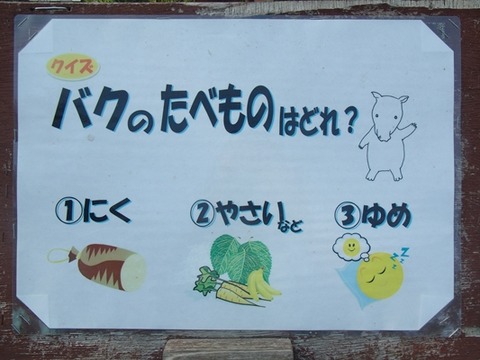 クイズ
バクのたべものはどれ?
①にく ②やさいなど ③ゆめ
zZZ